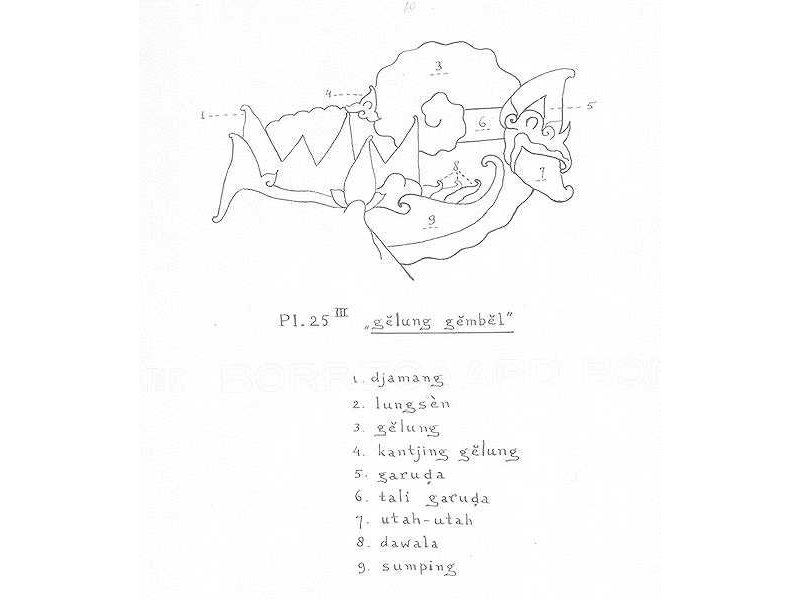 10
3
4
1
5
6
8
7
9
Pl. 25 III „gĕlung gĕmbĕl"
1. djamang
2. lungsèn
3. gĕlung
4. kantjing gĕlung
5. garuḍa
6. tali garuḍa
7. utah-utah
8. dawala
9. sumping